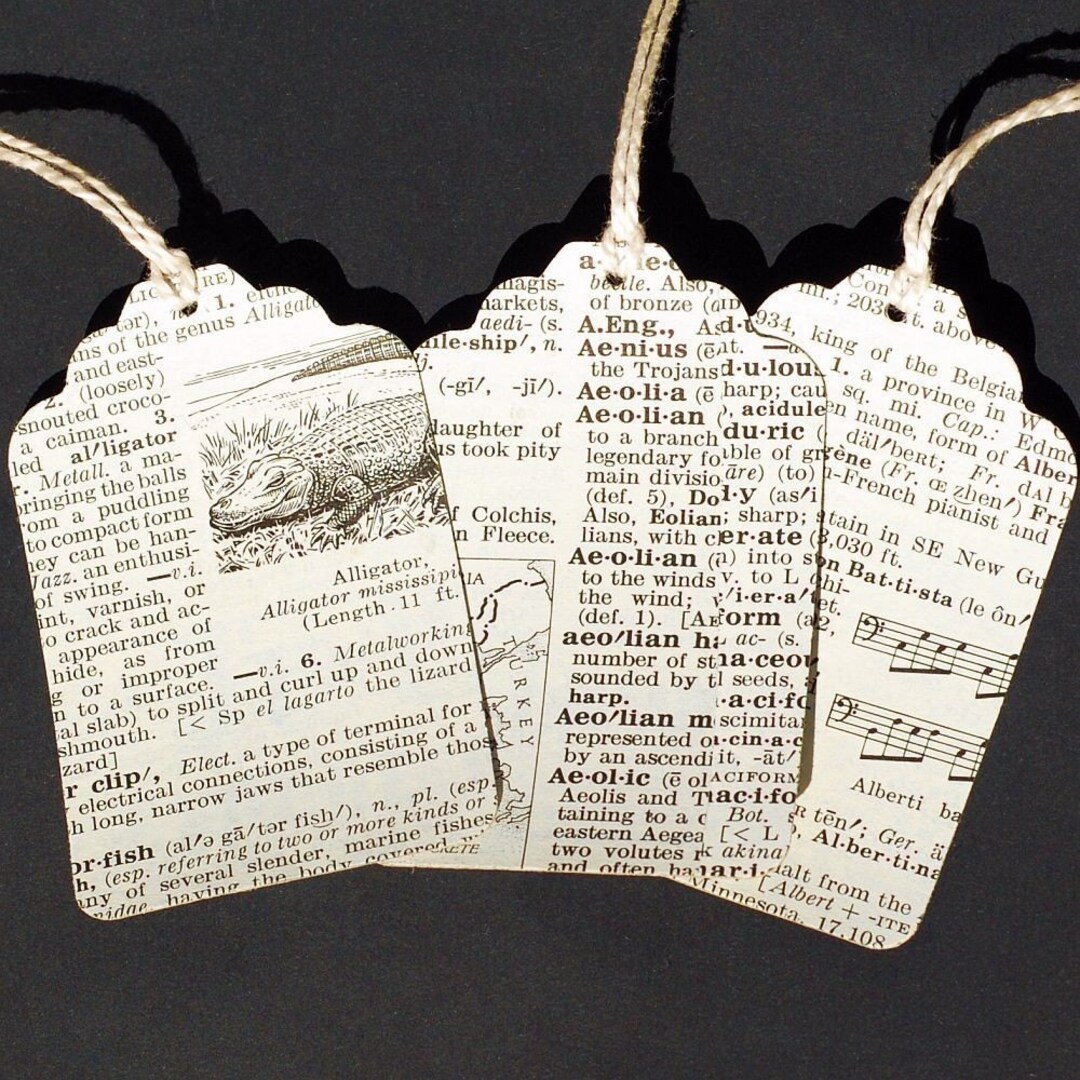 1. either
tər), n.
ns of the genus Alligat
and east-
2. (loosely)
snouted croco-
a caiman. 3.
led al′ligator
r. Metall. a ma-
bringing the balls
rom a puddling
to compact form
ey can be han-
Jazz. an enthusi-
of swing. —v.i.
int, varnish, or
o crack and ac-
appearance of
hide, as from
g or improper
n to a surface. —v.i. 6. Metalworking
al slab) to split and curl up and down
shmouth. [< Sp el lagarto the lizard
zard]
Alligator,
Alligator mississipi
(Length 11 ft.
r clip′, Elect. a type of terminal for
electrical connections, consisting of a
h long, narrow jaws that resemble thos
or·fish (al′ə gā′tər fish′), n., pl. (esp.
h, (esp. referring to two or more kinds or
ny of several slender, marine fishes
nidae, having the body covered w
magis-
markets,
aedi- (s.
ile·ship′, n.
(-gī′, -jī′).
daughter of
us took pity
f Colchis,
n Fleece.
IA
RKEY
CRETE
beetle. Also,
of bronze (
A.Eng., As
Ae·ni·us (ē
the Trojans
Ae·o·li·a (ē
Ae·o·li·an
to a branch
legendary fo
main divisio
(def. 5), Do
Also, Eolian
lians, with c
Ae·o·li·an
to the winds
the wind;
(def. 1). [Ae
aeo′lian ha
number of st
sounded by t
harp.
Aeo′lian m
represented o
by an ascendi
Ae·ol·ic (ē ol
Aeolis and T
taining to a
eastern Aegea
two volutes
and often ha
d·u
at. —
d·u·lou
harp; cau
, acidule
du·ric (
ble of gr
āre) (to)
l·y (as′i
; sharp;
er·ate (
) into s
v. to L
′i·er·a′
form (a
ac- (s.
na·ceou
seeds,
·a·ci·fo
scimita
·cin·a·c
it, -āt′
ACIFORM
nac·i·fo
Bot.
[< L
akina
nar·i·
a s
mi.; 203 st. above
934, king of the Belgian
1. a province in W
sq. mi. Cap.: Edmo
en name, form of Alber
däl′bert; Fr. dAl b
rène (Fr. œ zhen′) Fra
n-French pianist and
tain in SE New Gu
3,030 ft.
on Bat·ti·sta (le ôn′
hi-
et,
Alberti ba
tēn′; Ger. ä
Al·ber·ti·na
alt from the
[Albert + -ITE
Minnesota. 17,108